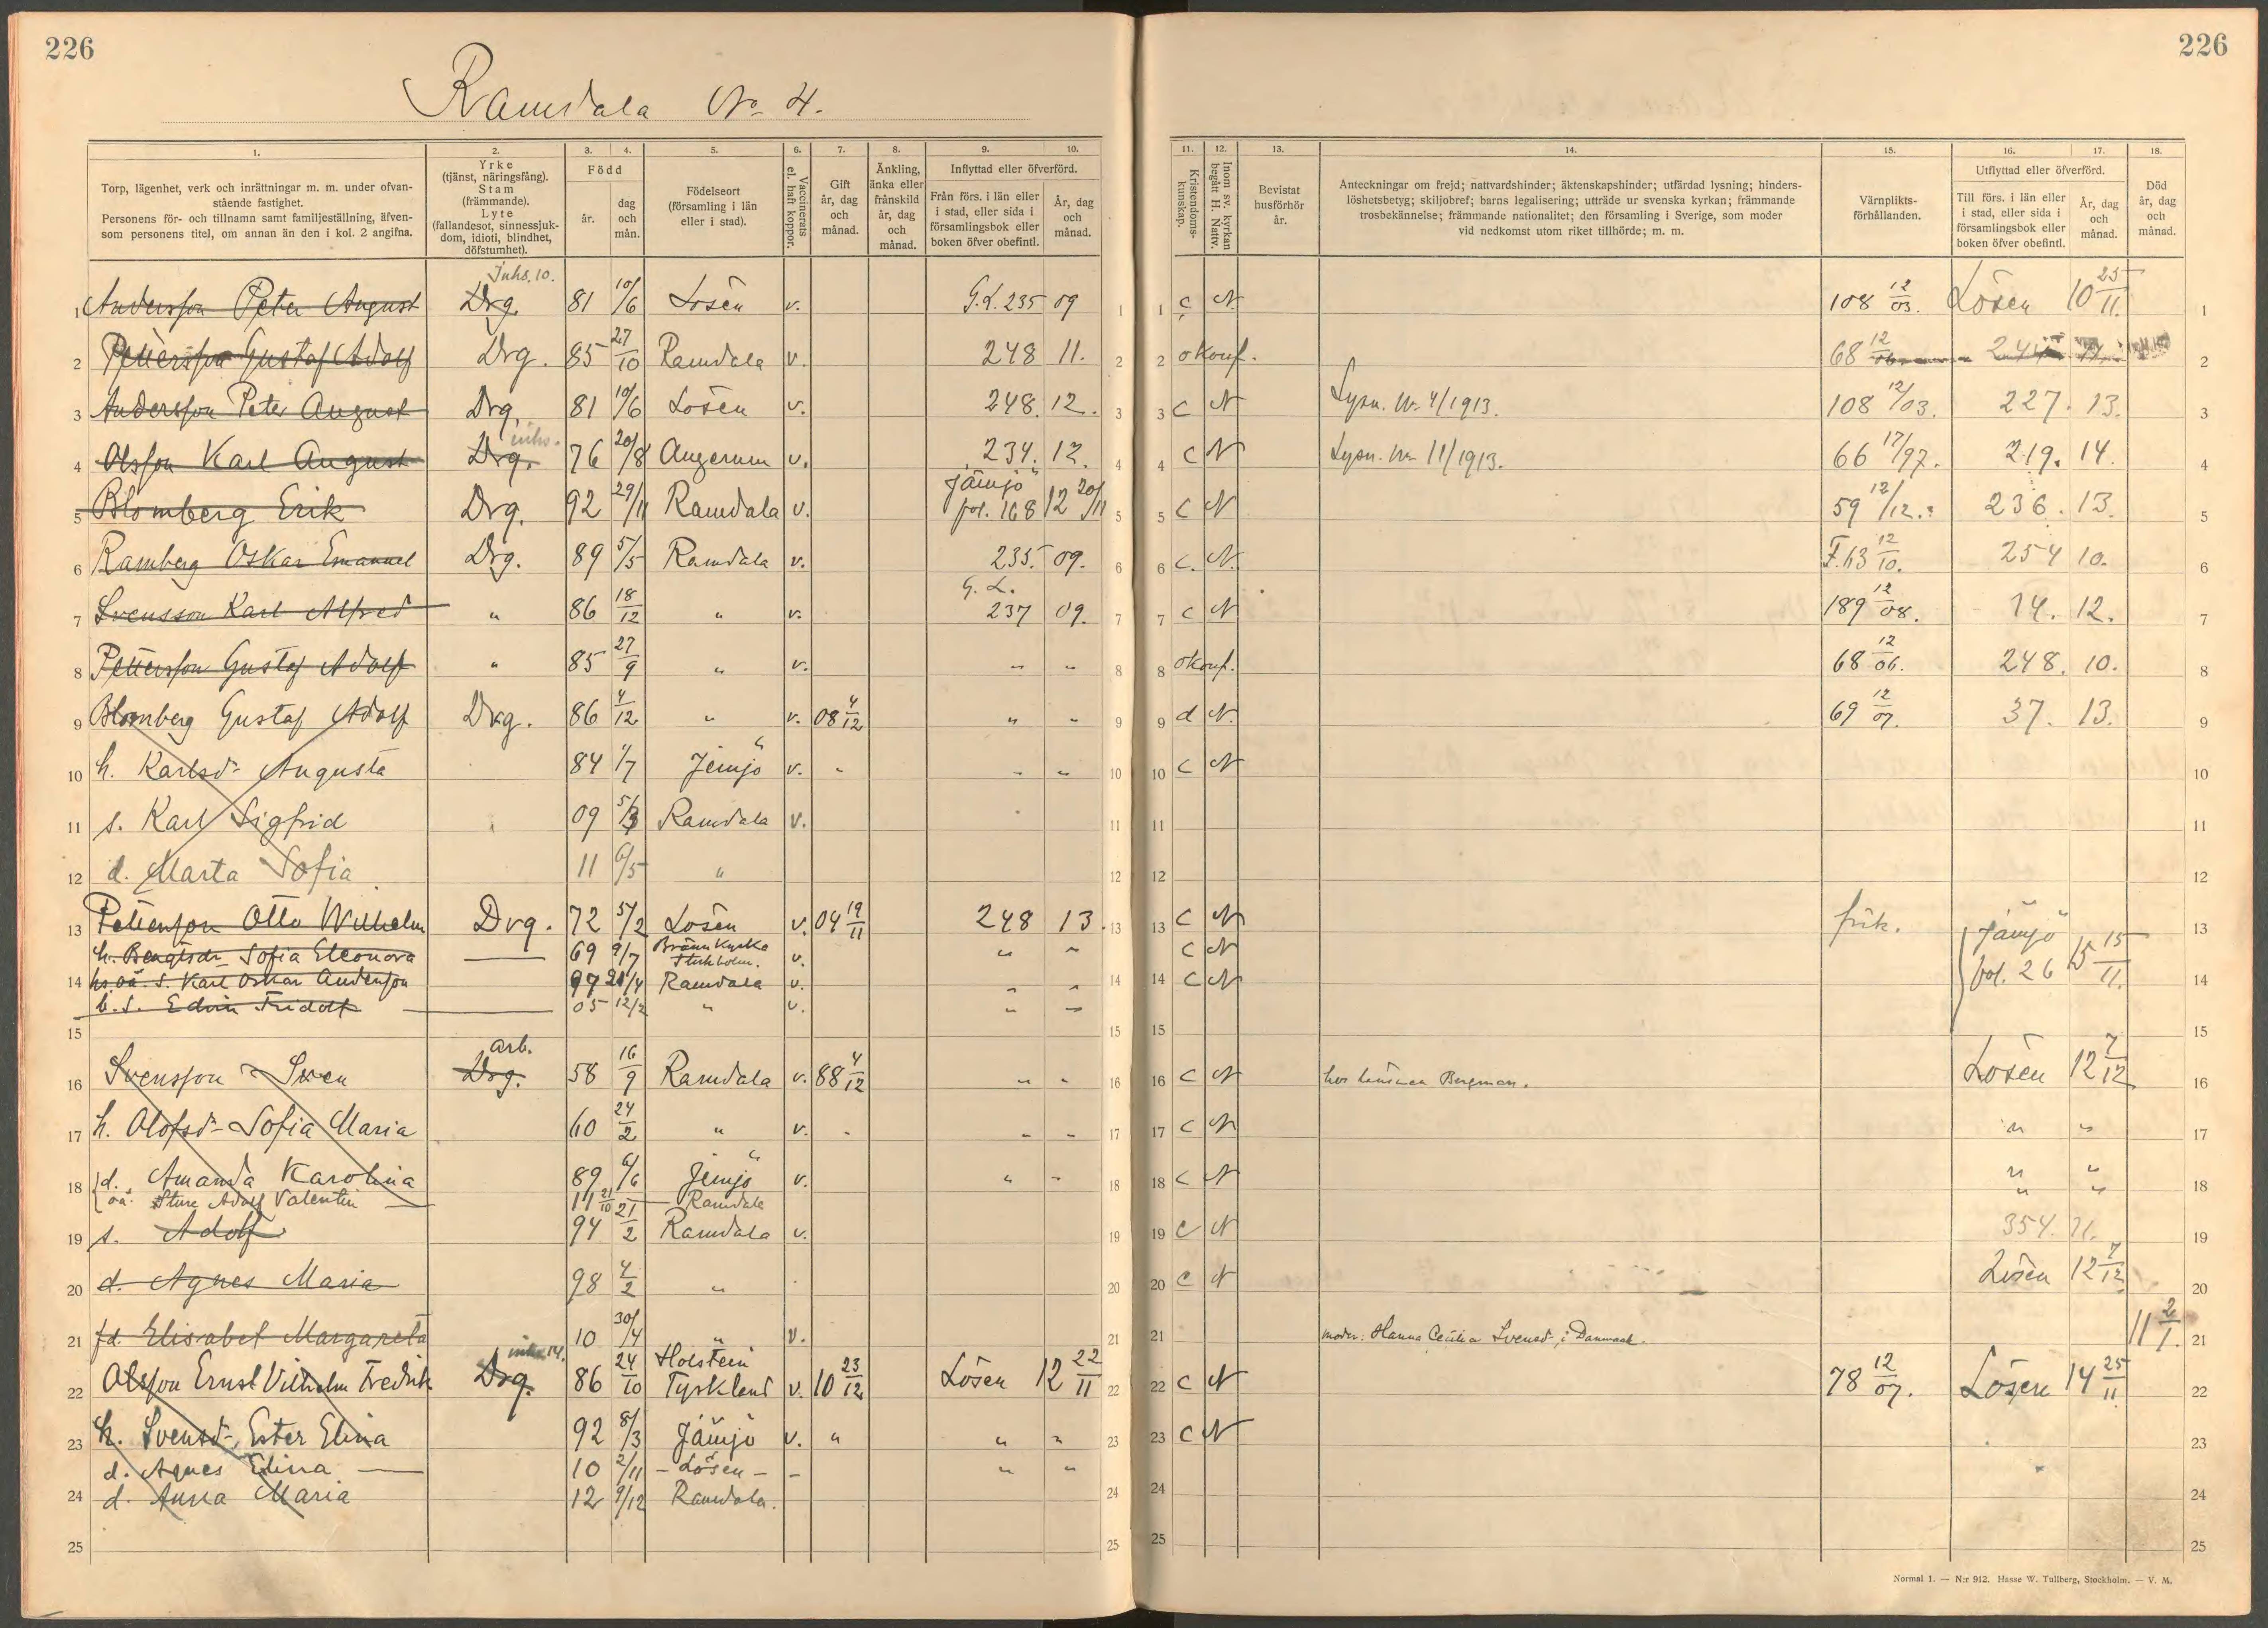 226
226
Ramdala No 4.
1. 2. 3. 4. 5. 6. 7. 8. 9. 10.
Torp, lägenhet, verk och inrättningar m. m. under ofvanstående fastighet.
Personens för- och tillnamn samt familjeställning, äfvensom personens titel, om annan än den i kol. 2 angifna.
Yrke (tjänst, näringsfång). Stam (främmande). Lyte (fallandesot, sinnessjukdom, idioti, blindhet, döfstumhet).
Född
år.
dag och mån.
Födelseort (församling i län eller i stad).
Vaccinerats el. haft koppor.
Gift år, dag och månad.
Änkling, änka eller frånskild år, dag och månad.
Inflyttad eller öfverförd.
Från förs. i län eller i stad, eller sida i församlingsbok eller boken öfver obefintl.
År, dag och månad.
11. 12. 13. 14. 15. 16. 17. 18.
Kristendomskunskap.
Inom sv. kyrkan begått H. Nattv.
Bevistat husförhör år.
Anteckningar om frejd; nattvardshinder; äktenskapshinder; utfärdad lysning; hinderslöshetsbetyg; skiljobref; barns legalisering; utträde ur svenska kyrkan; främmande trosbekännelse; främmande nationalitet; den församling i Sverige, som moder vid nedkomst utom riket tillhörde; m. m.
Värnpliktsförhållanden.
Utflyttad eller öfverförd.
Till förs. i län eller i stad, eller sida i församlingsbok eller boken öfver obefintl.
År, dag och månad.
Död år, dag och månad.
Inhs. 10.
1 Andersson Peter August Drg. 81 10/6 Lösen v. G.L. 235 09 1 1 c N. 108 12/03. Lösen 10 25/11. 1
2 Pettersson Gustaf Adolf Drg. 85 27/10 Ramdala v. 248 11. 2 2 okonf. 68 12/06 2
3 Andersson Peter August Drg. 81 10/6 Lösen v. 248. 12. 3 3 c N Lysn. No 4/1913. 108 12/03. 227. 13. 3
inhs.
4 Olsson Karl August Drg. 76 20/8 Augerum v. 234. 12. 4 4 c N Lysn. No 11/1913. 66 17/97. 219. 14. 4
5 Blomberg Erik Drg. 92 29/11 Ramdala v. Jämjö fol. 168 12 20/11 5 5 c N 59 12/12. 236. 13. 5
6 Ramberg Oskar Emanuel Drg. 89 5/5 Ramdala v. 235. 09. 6 6 c. N. F. 63 12/10. 254 10. 6
7 Svensson Karl Alfred " 86 18/12 " v. G. L. 237 09. 7 7 c N 189 12/08. 14. 12. 7
8 Pettersson Gustaf Adolf " 85 27/9 " v. " " 8 8 okonf. 68 12/06. 248. 10. 8
9 Blomberg Gustaf Adolf Drg. 86 4/12 " v. 08 4/12 " " 9 9 d N. 69 12/07. 37. 13. 9
10 h. Karlsdr Augusta 84 1/7 Jemjö v. " " " 10 10 c N 10
11 s. Karl Sigfrid 09 5/3 Ramdala v. 11 11 11
12 d. Marta Sofia 11 6/5 " 12 12 12
13 Pettersson Otto Wilhelm Drg. 72 5/2 Lösen v. 04 19/11 248 13. 13 13 c N frik. Jämjö fol. 26 15 15/11. 13
h. Bengtsdr Sofia Eleonora 69 9/7 Brännkyrka Stockholm. v. " " c N
14 hs oä. s. Karl Oskar Andersson 97 Ramdala v. " " 14 14 c N 14
b. s. Edvin Fridolf 05 12/2 " v. " "
15 15 15 15
arb.
16 Svensson Sven Drg. 58 16/9 Ramdala v. 88 4/12 " " 16 16 c N hos länsman Bergman. Lösen 12 7/12 16
17 h. Olofsdr Sofia Maria 60 24/2 " v. " " " 17 17 c N " " 17
18 d. Amanda Karolina 89 6/6 Jemjö v. " " 18 18 c N " " 18
oä. Sture Adolf Valentin 11 21/10 Ramdala " "
19 s. Adolf 94 21/2 Ramdala v. 19 19 c N 354. 11. 19
20 d. Agnes Maria 98 4/2 " 20 20 c N Lösen 12 7/12 20
21 fd. Elisabet Margareta 10 30/4 " v. 21 21 moder: Hanna Cecilia Svensdr i Danmark. 11 2/1. 21
inhs 14.
22 Olsson Ernst Vilhelm Fredrik Drg. 86 24/10 Holstein Tyskland v. 10 23/12 Lösen 12 22/11 22 22 c N 78 12/07. Lösen 14 25/11 22
23 h. Svensdr Ester Elina 92 8/3 Jämjö v. " " " 23 23 c N 23
d. Agnes Elina 10 2/11 - Lösen - - " "
24 d. Anna Maria 12 9/12 Ramdala. 24 24 24
25 25 25 25
Normal 1. — N:r 912. Hasse W. Tullberg, Stockholm. — V. M.